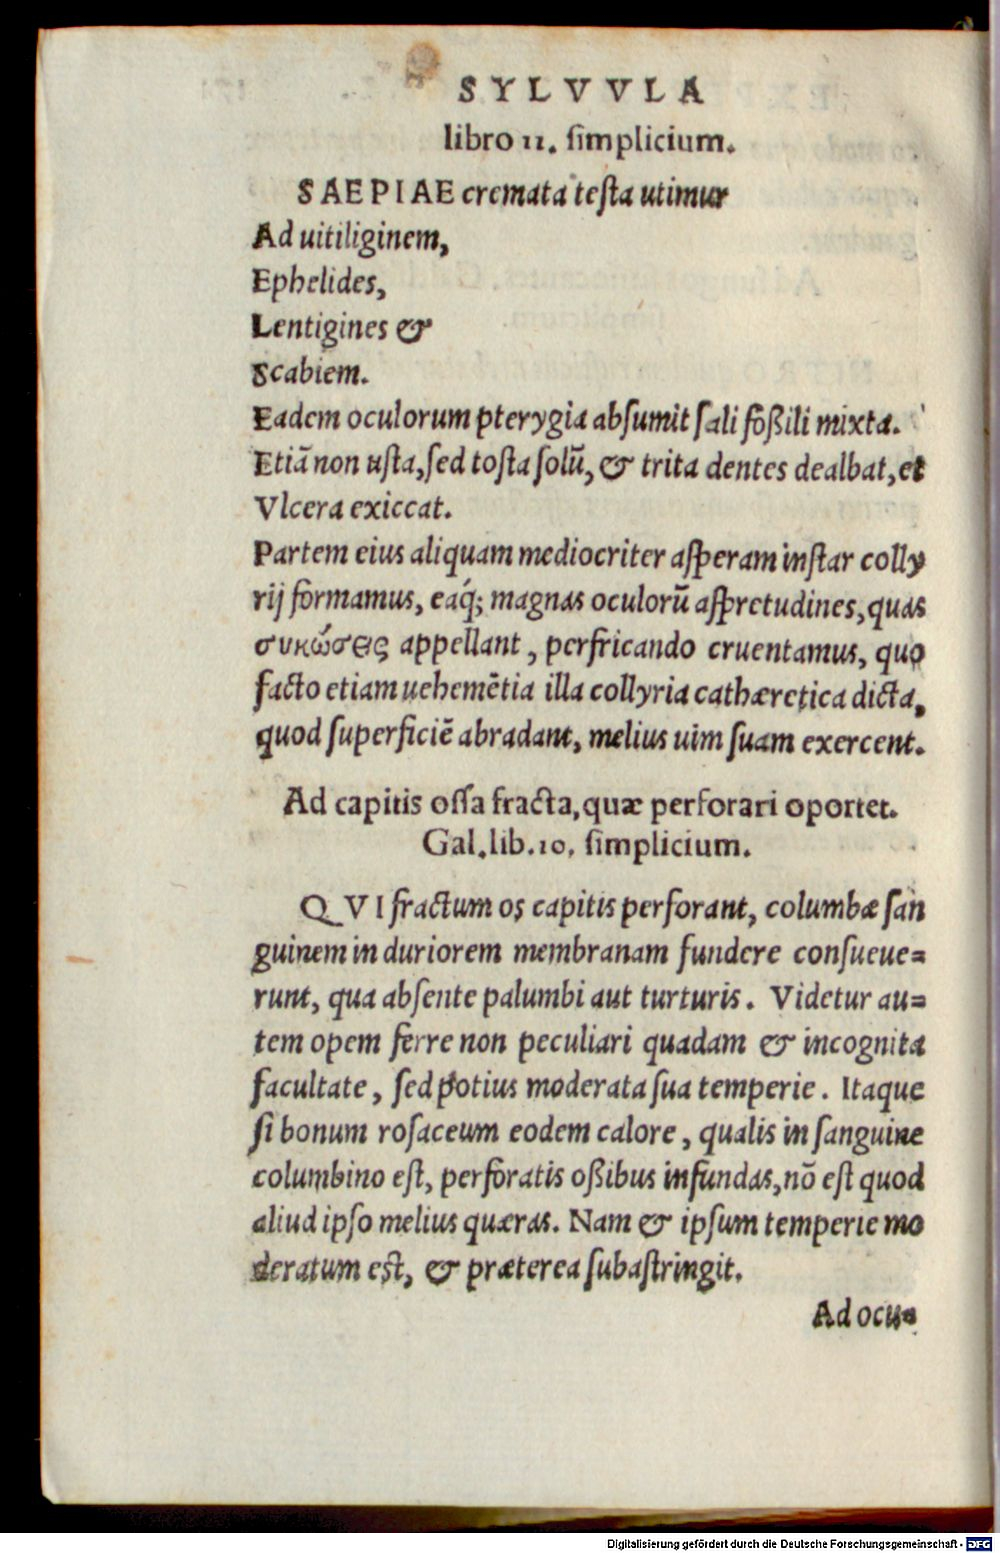 SYLVVLA
libro 11. ſimplicium.
SAEPIAE cremata teſta utimur
Ad uitiliginem,
Ephelides,
Lentigines &
Scabiem.
Eadem oculorum pterygia abſumit ſali foßili mixta.
Etiā non uſta, ſed toſta ſolū, & trita dentes dealbat, et
Vlcera exiccat.
Partem eius aliquam mediocriter aſperam inſtar colly
rij formamus, eaq́; magnas oculorū aſpretudines, quas
συκώσεις appellant, perfricando cruentamus, quo
facto etiam uehemētia illa collyria cathæretica dicta,
quod ſuperficiē abradant, melius uim ſuam exercent.
Ad capitis oſſa fracta, quæ perforari oportet.
Gal. lib. 10. ſimplicium.
QVI fractum os capitis perforant, columbæ ſan
guinem in duriorem membranam fundere conſueue=
runt, qua abſente palumbi aut turturis. Videtur au=
tem opem ferre non peculiari quadam & incognita
facultate, ſed potius moderata ſua temperie. Itaque
ſi bonum roſaceum eodem calore, qualis in ſanguine
columbino eſt, perforatis oßibus infundas, nō eſt quod
aliud ipſo melius quæras. Nam & ipſum temperie mo
deratum eſt, & præterea ſubaſtringit.
Ad ocu=
Digitalisierung gefördert durch die Deutsche Forschungsgemeinschaft - DFG